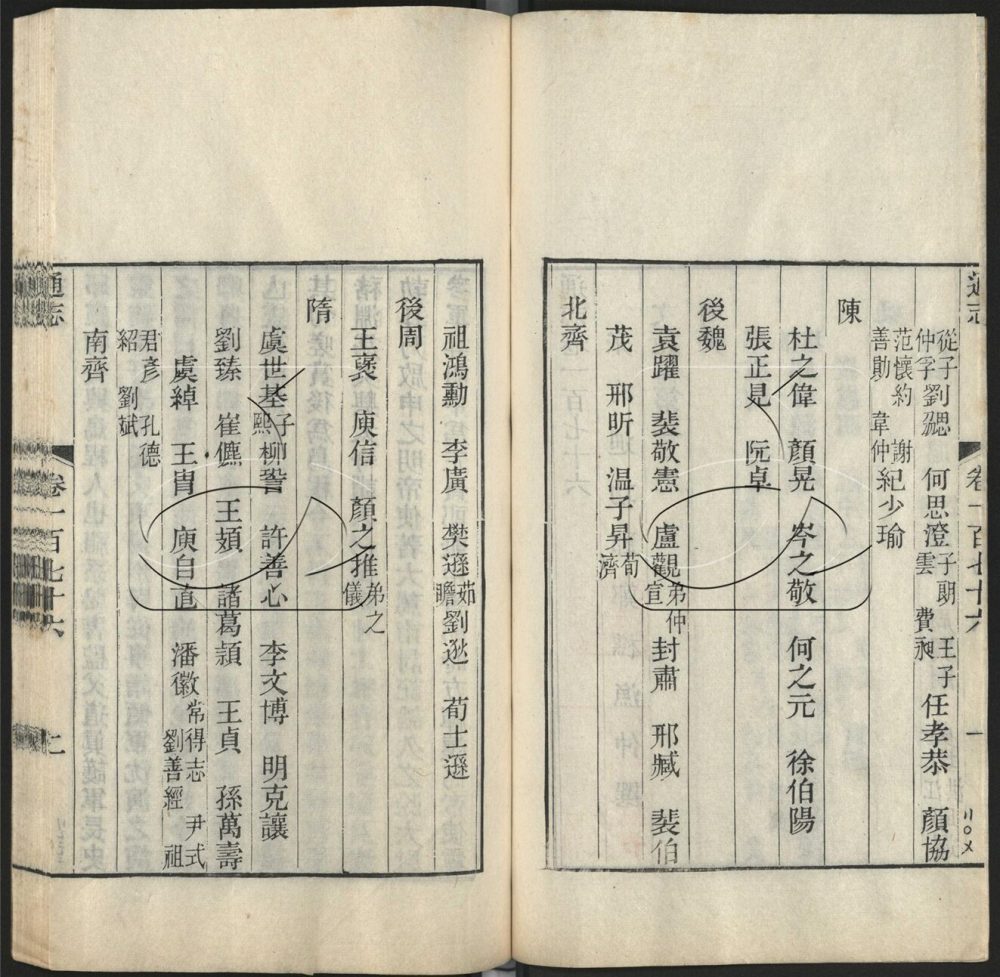 通志 卷一百七十六 一
從子仲孚 劉勰 何思澄 子朗 王子雲 費昶 任孝恭 顏協
范懷約 謝善勛 韋仲 紀少瑜
陳
杜之偉 顏晃 岑之敬 何之元 徐伯陽
張正見 阮卓
後魏
袁躍 裴敬憲 盧觀 弟仲宣 封肅 邢臧 裴伯
茂 邢昕 温子昇 荀濟
北齊
祖鴻勳 李廣 樊遜 茹瞻 劉逖 荀士遜
後周
王褒 庾信 顏之推 弟之儀
隋
虞世基 子熙 柳䛒 許善心 李文博 明克讓
劉臻 崔儦 王頍 諸葛頴 王貞 孫萬壽
虞綽 王胄 庾自直 潘徽 常得志 尹式 劉善經 祖
君彥 孔德紹 劉斌
南齊
通志 卷一百七十六 二